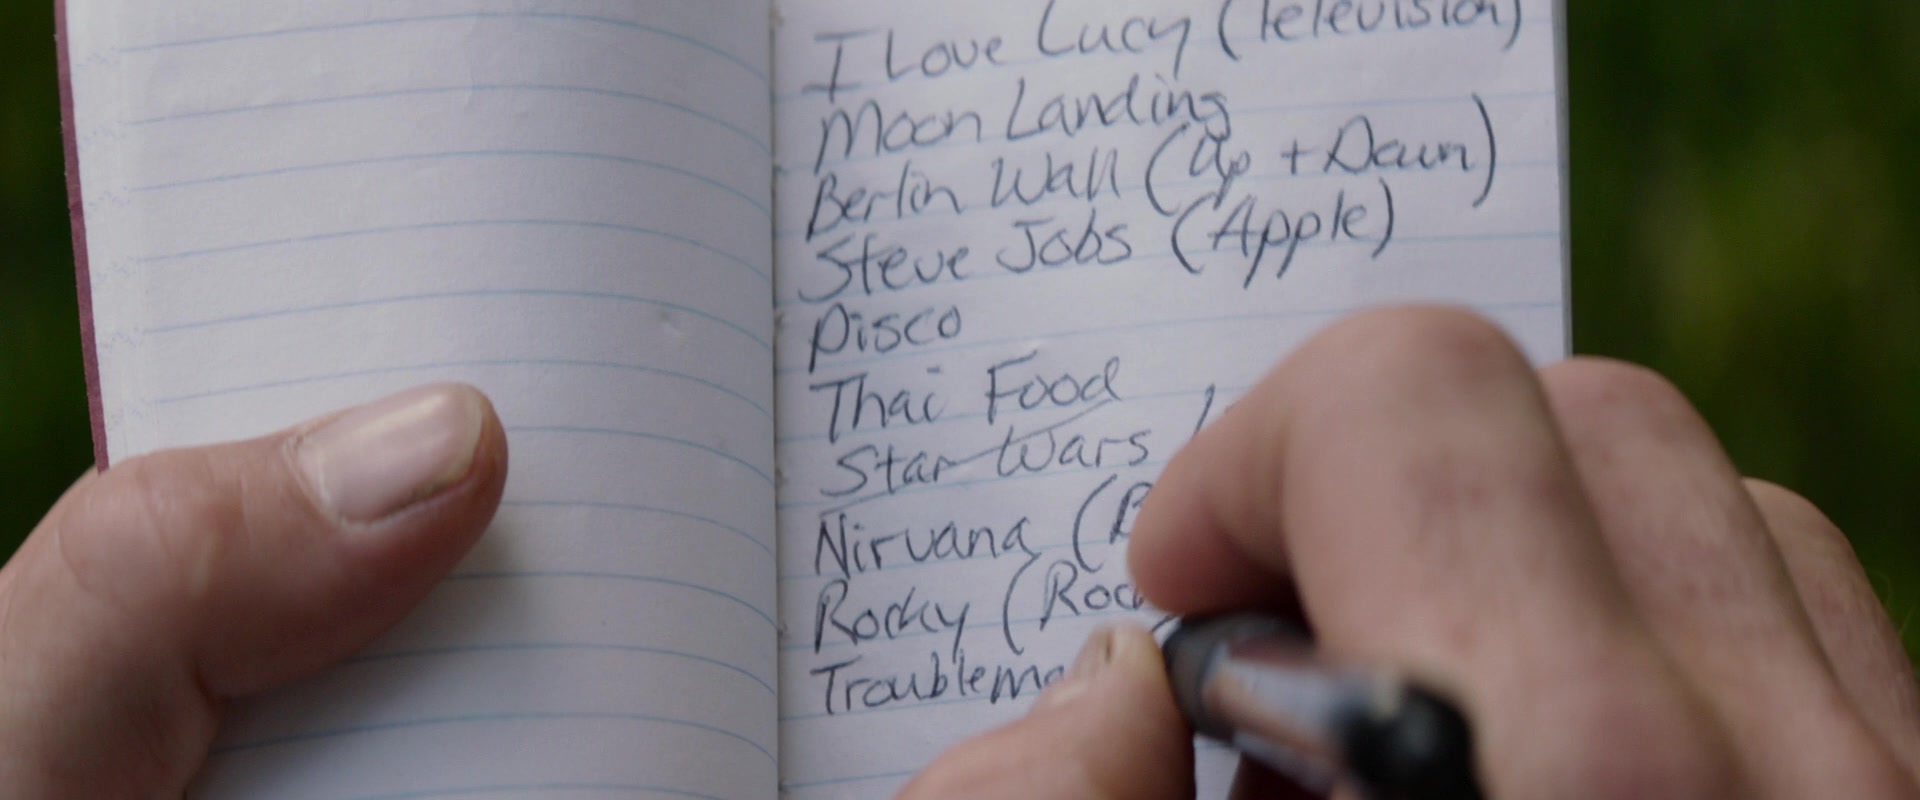 I Love Lucy (Television)
Moon Landing
Berlin Wall (Up + Down)
Steve Jobs (Apple)
Disco
Thai Food
Star Wars
Nirvana (B
Rocky (Roc
Troublema